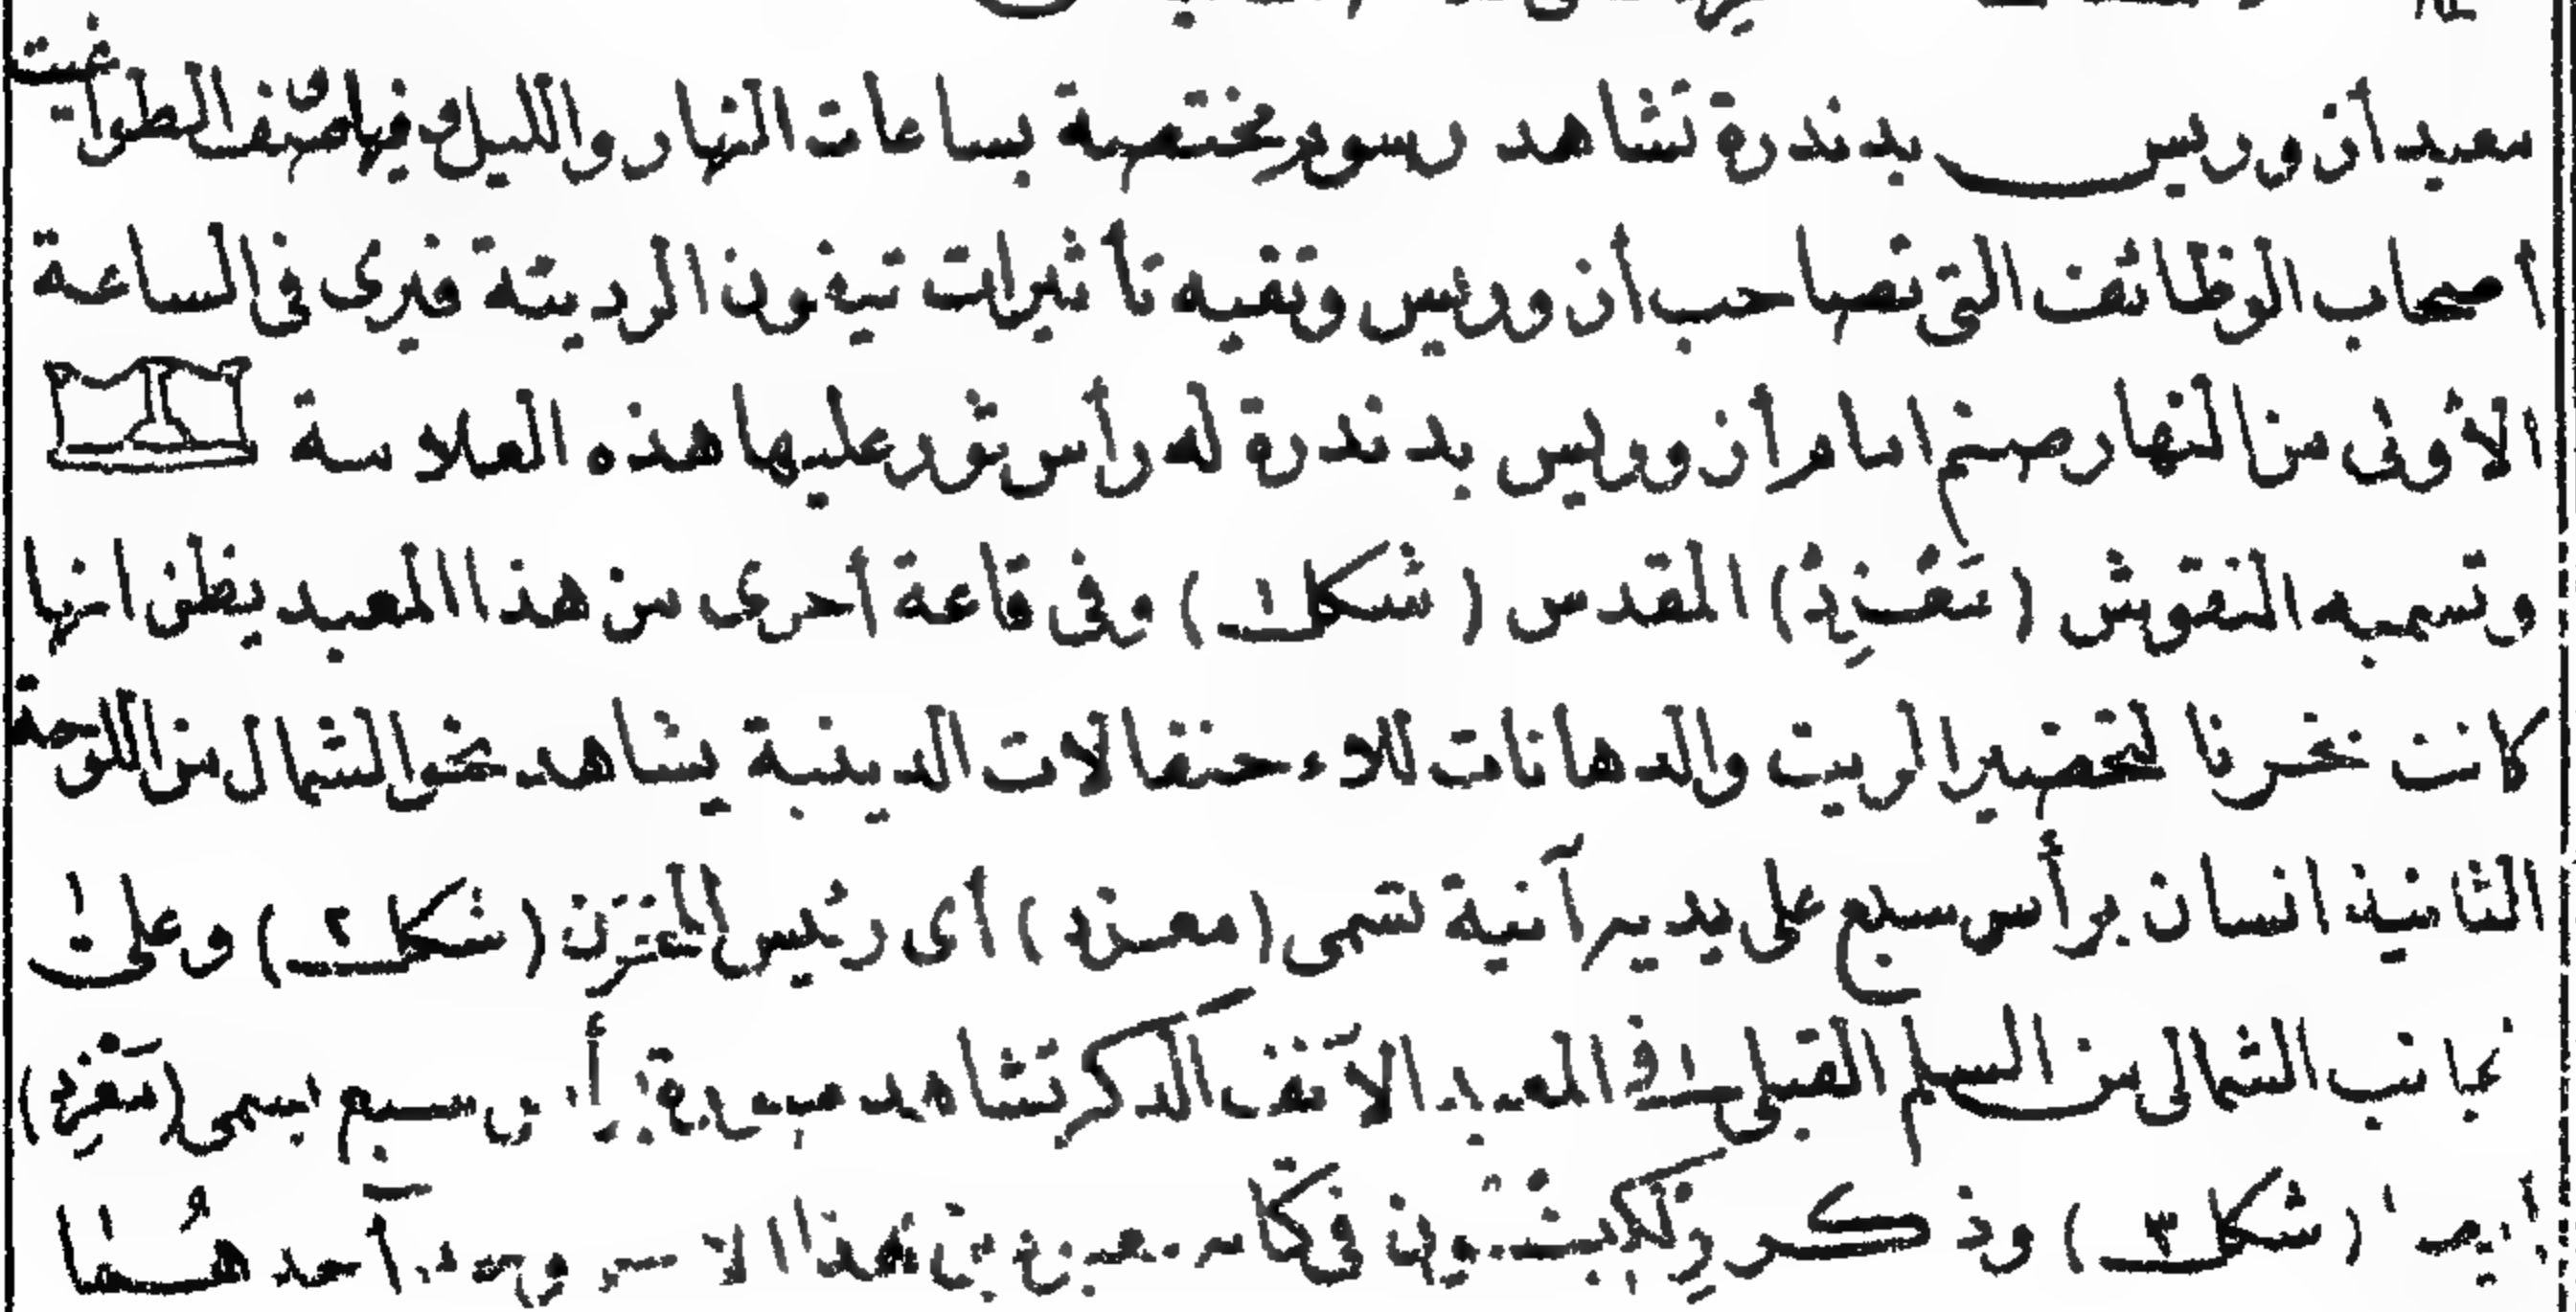 معبد أن وريس بدندرة تشاهد رسوم مختصة بساعات النهار والليل وفيها صنف الطواغيت
أصحاب الوظائف التى تصاحب أن ووريس وتقيه تأثيرات تيفون الرديئة فيرى فى الساعة
الأولى من النهار صنم امام أن ووريس بدندرة له رأس ثور عليها هذه العلامة
وتسميه النقوش (المقدس (شكل ١) وفى قاعة أخرى من هذا المعبد يظن انها
كانت مخزنا لتحضير الزيت والدهانات للاحتفالات الدينية يشاهد نحو الشمال من اللوحة
الثانية انسان برأس سبع على يديه آنية تسمى (معزد) أى رئيس المخزن (شكل ٢) وعلى
الجانب الشمالى من السلم القبلى فى المعبد الآنف الذكر تشاهد صورة برأس سبع يسمى
أيضا (شكل ٣) وذكر فى هذا آحدهما